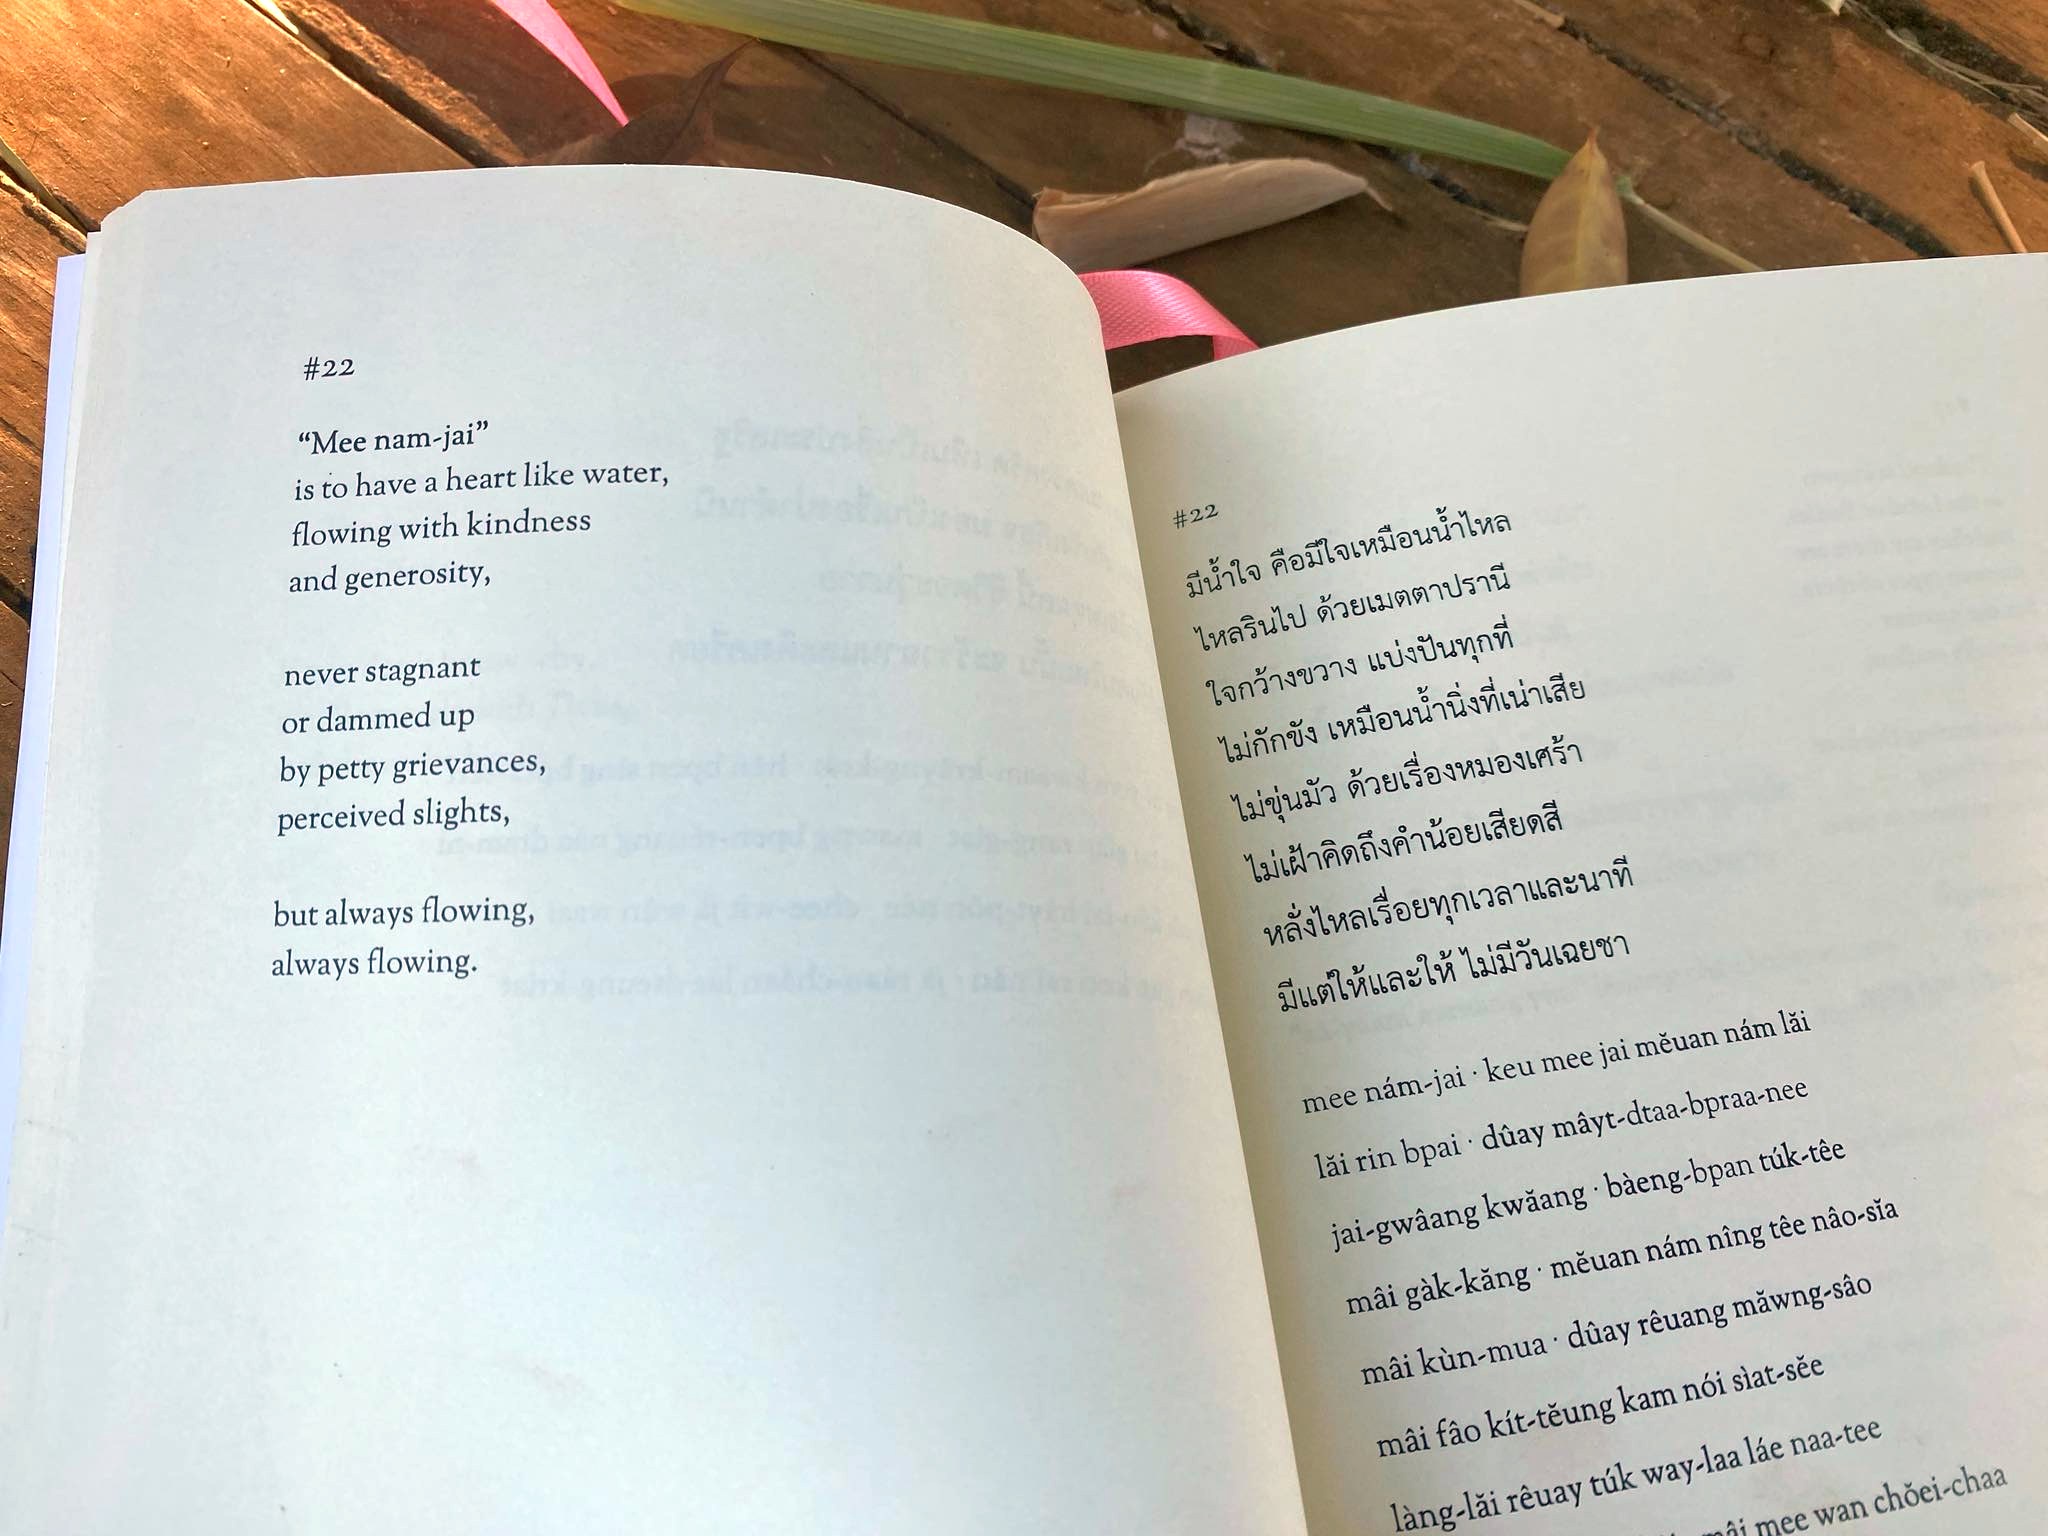 #22
“Mee nam-jai”
is to have a heart like water,
flowing with kindness
and generosity,
never stagnant
or dammed up
by petty grievances,
perceived slights,
but always flowing,
always flowing.
#22
มีน้ำใจ คือมีใจเหมือนน้ำไหล
ไหลรินไป ด้วยเมตตาปรานี
ใจกว้างขวาง แบ่งปันทุกที่
ไม่กักขัง เหมือนน้ำนิ่งที่เน่าเสีย
ไม่ขุ่นมัว ด้วยเรื่องหมองเศร้า
ไม่เฝ้าคิดถึงคำน้อยเสียดสี
หลั่งไหลเรื่อยทุกเวลาและนาที
มีแต่ให้และให้ ไม่มีวันเฉยชา
mee nám-jai · keu mee jai mĕuan nám lăi
lăi rin bpai · dûay mâyt-dtaa-bpraa-nee
jai-gwâang kwăang · bàeng-bpan túk-têe
mâi gàk-kăng · mĕuan nám nîng têe nâo-sĭa
mâi kùn-mua · dûay rêuang măwng-sâo
mâi fâo kít-tĕung kam nói sìat-sĕe
làng-lăi rêuay túk way-laa láe naa-tee
mâi mee wan chŏei-chaa